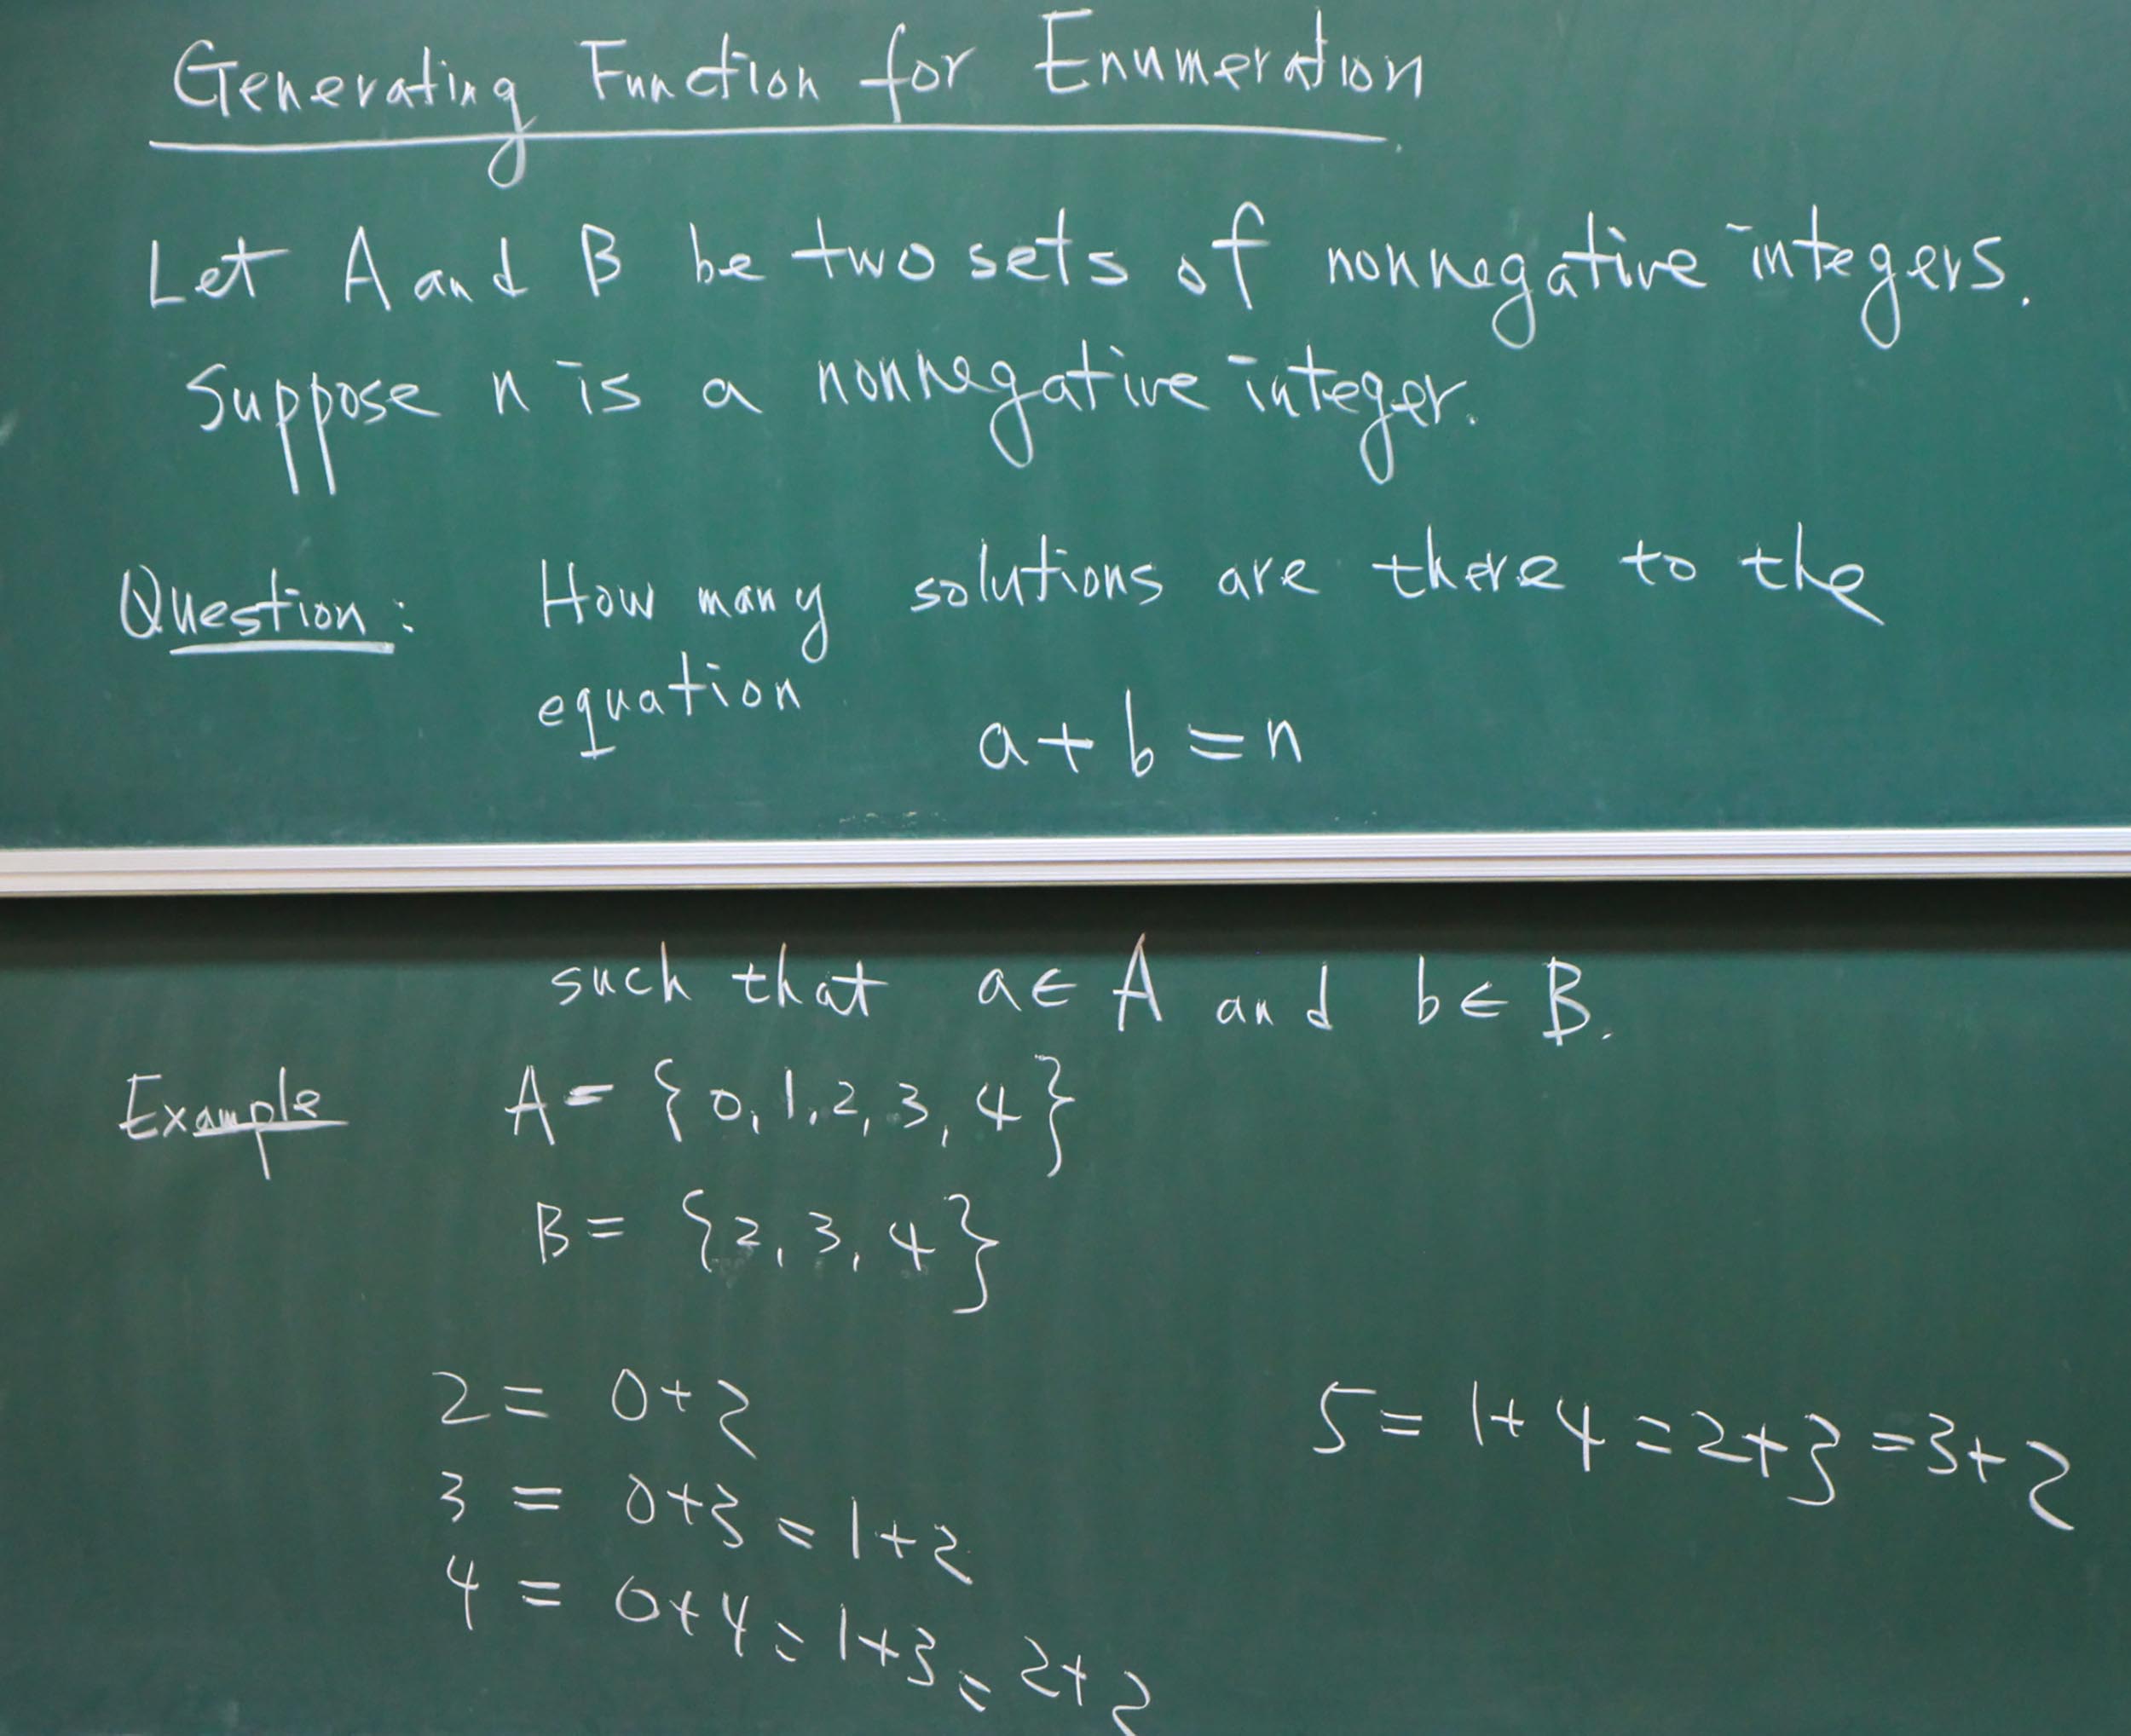 Generating Function for Enumeration
Let A and B be two sets of nonnegative integers.
Suppose n is a nonnegative integer.
Question: How many solutions are there to the
equation
a+b=n
such that a∈A and b∈B.
Example A= {0,1,2,3,4}
B= {2,3,4}
2= 0+2
3 = 0+3=1+2
4 = 0+4=1+3=2+2
5= 1+4=2+3=3+2